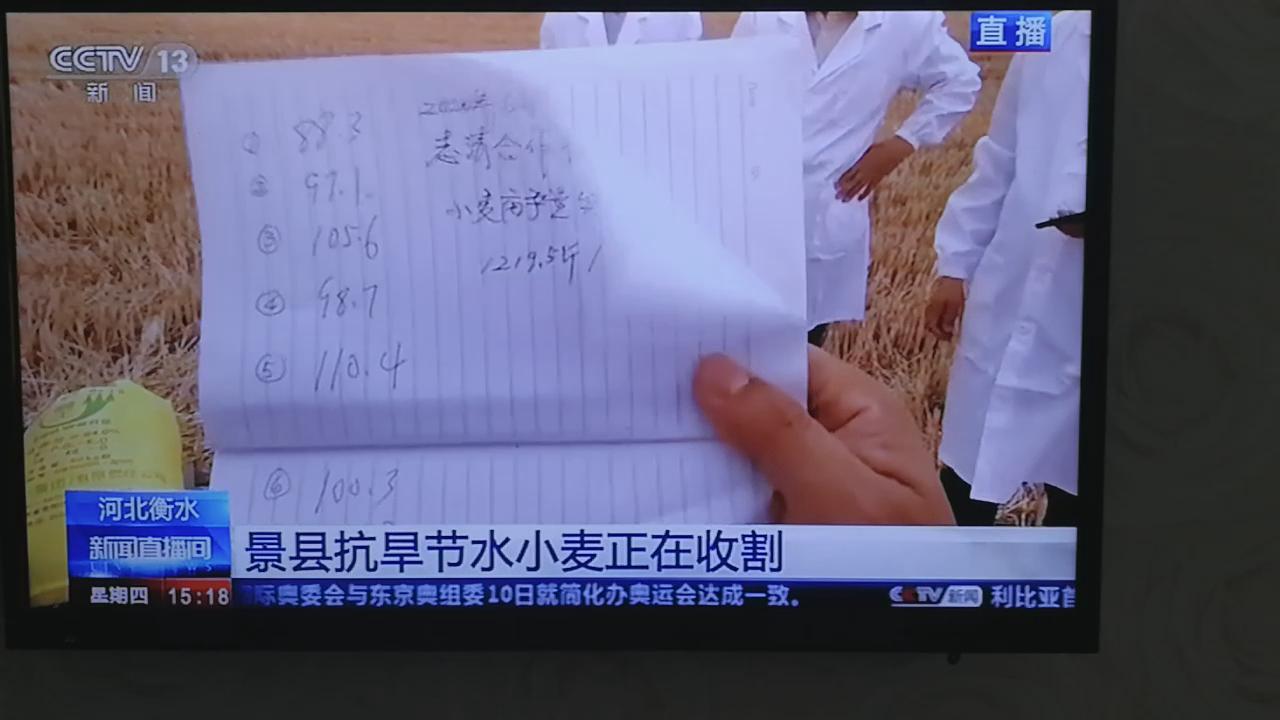 CCTV 13
新闻
直播
① 88.3
② 97.1
③ 105.6
④ 98.7
⑤ 110.4
⑥ 100.3
志清合作
小麦亩产量
1219.5斤/
河北衡水
新闻直播间
景县抗旱节水小麦正在收割
星期四 15:18
际奥委会与东京奥组委10日就简化办奥运会达成一致。
CCTV 新闻 利比亚首